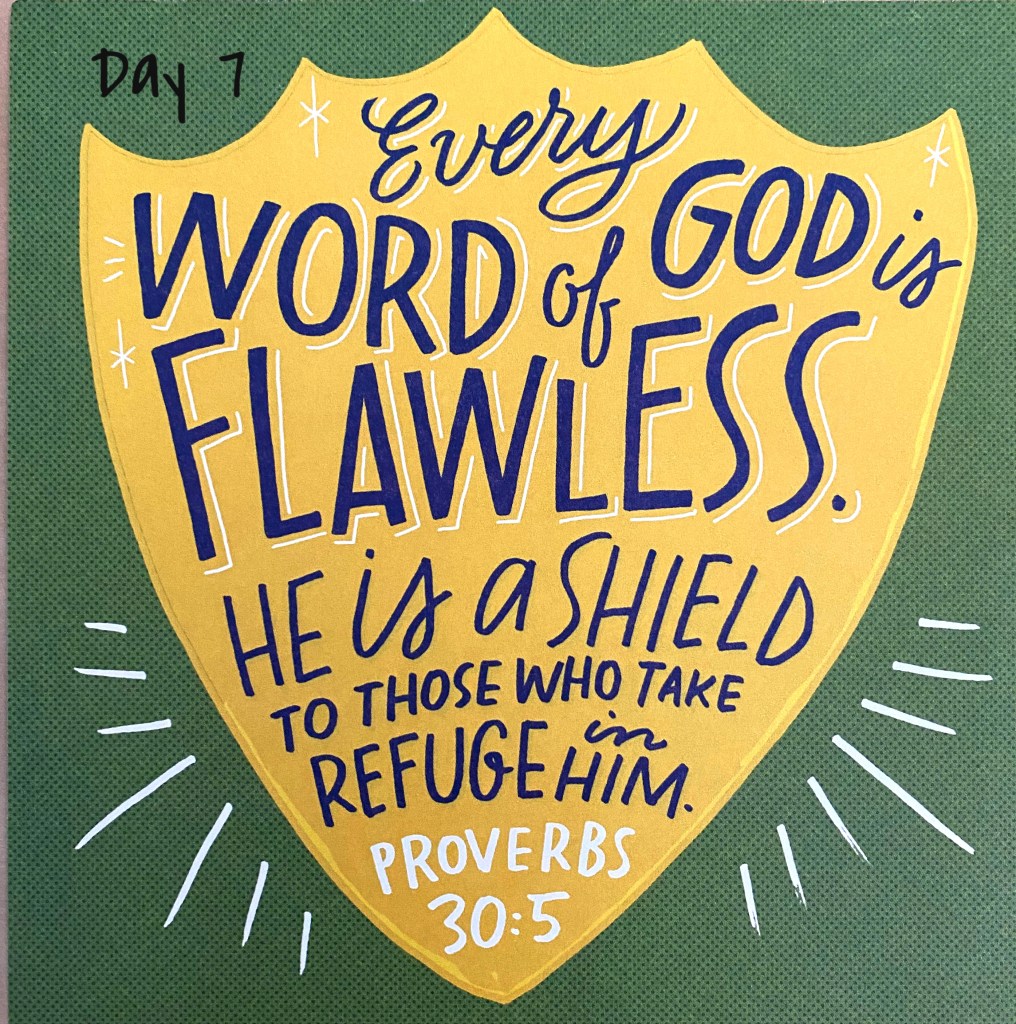 Day 7
Every
WORD of GOD is
FLAWLESS.
HE is a SHIELD
TO THOSE WHO TAKE
REFUGE in HIM.
PROVERBS
30:5